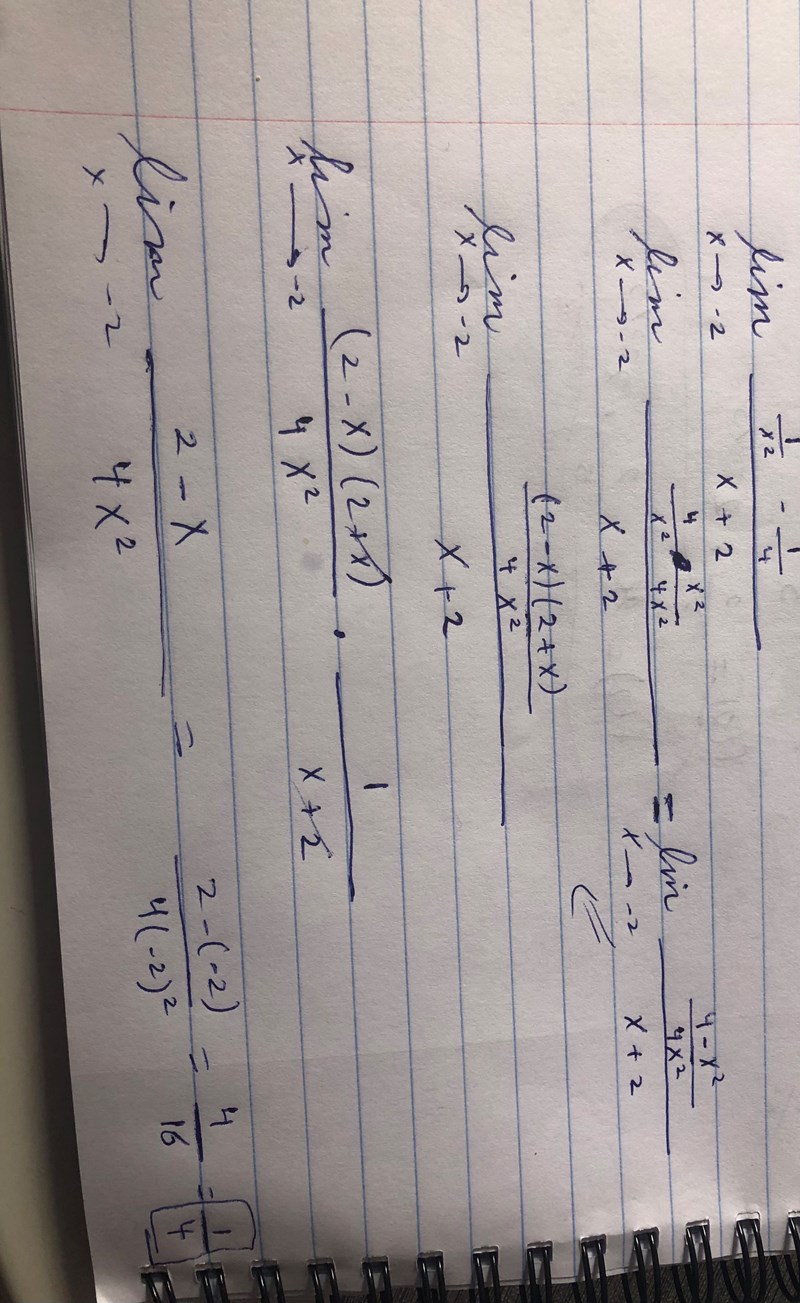 lim x→-2 (1/x² - 1/4)/(x + 2)
lim x→-2 (4/x² · x²/4x²)/(x + 2) = lim x→-2 ((4 - x²)/4x²)/(x + 2)
lim x→-2 ((2-x)(2+x)/4x²)/(x + 2)
lim x→-2 (2-x)(2+x)/4x² · 1/(x+2)
lim x→-2 (2-x)/4x² = (2-(-2))/4(-2)² = 4/16 = 1/4